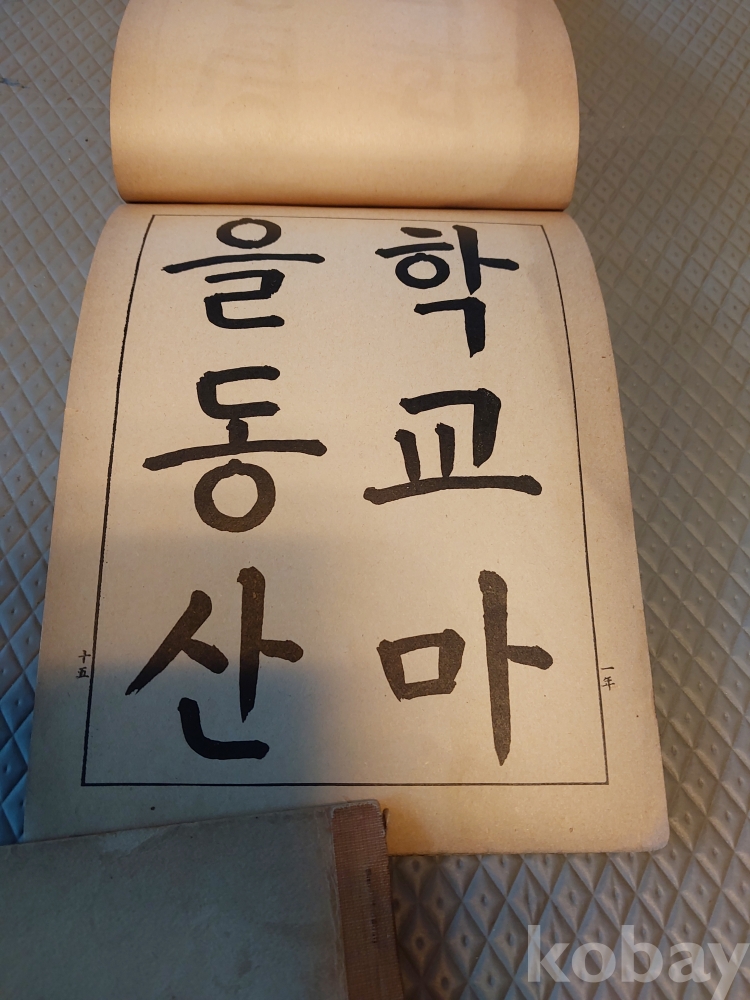 학교마
을동산
一年
十五
kobay